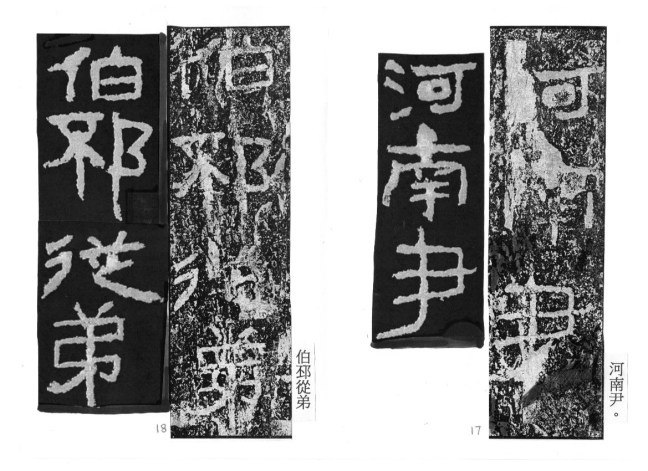 河南尹。
河南尹
河南尹
17
伯邳從弟
伯邳從弟
伯邳從弟
18